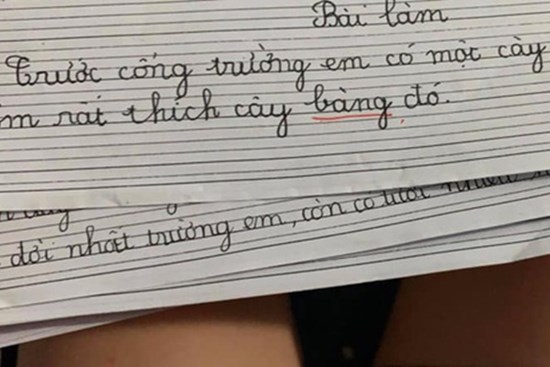 Bài làm
Trước cổng trường em có một cây
m rất thích cây bàng đó.
đời nhất trường em, còn có tươi